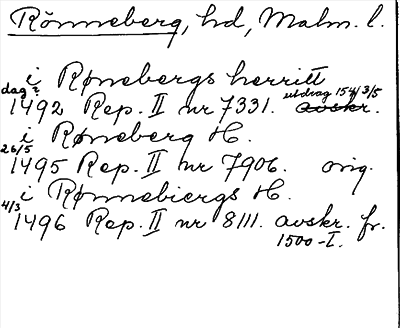 Rönneberg, hd, Malm. l.
i Rønebergs herritt
dag? 1492 Rep. II nr 7331. avskr. utdrag 154/3/5
i Røneberg H.
26/5 1495 Rep. II nr 7906. orig.
i Rønnebiergs H.
4/3 1496 Rep. II nr 8111. avskr. fr.
1500-t.